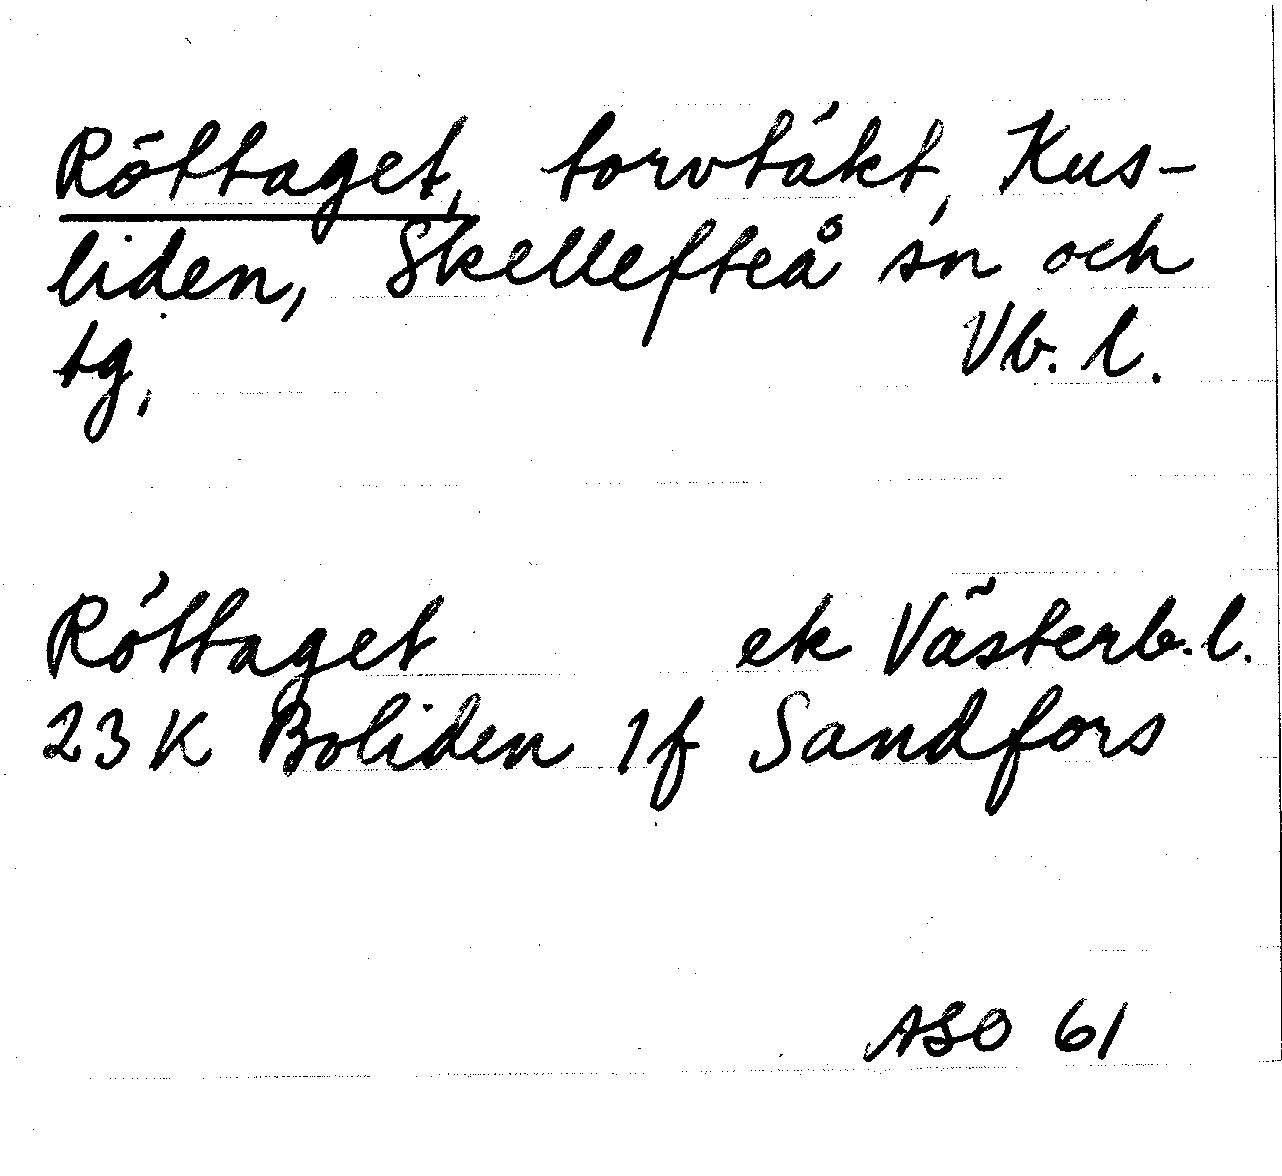 Röttaget, torvtäkt, Kus-
liden, Skellefteå sn och
tg, Vb. l.
Röttaget ek Västerb.l.
23 K Boliden 1f Sandfors
ASO 61